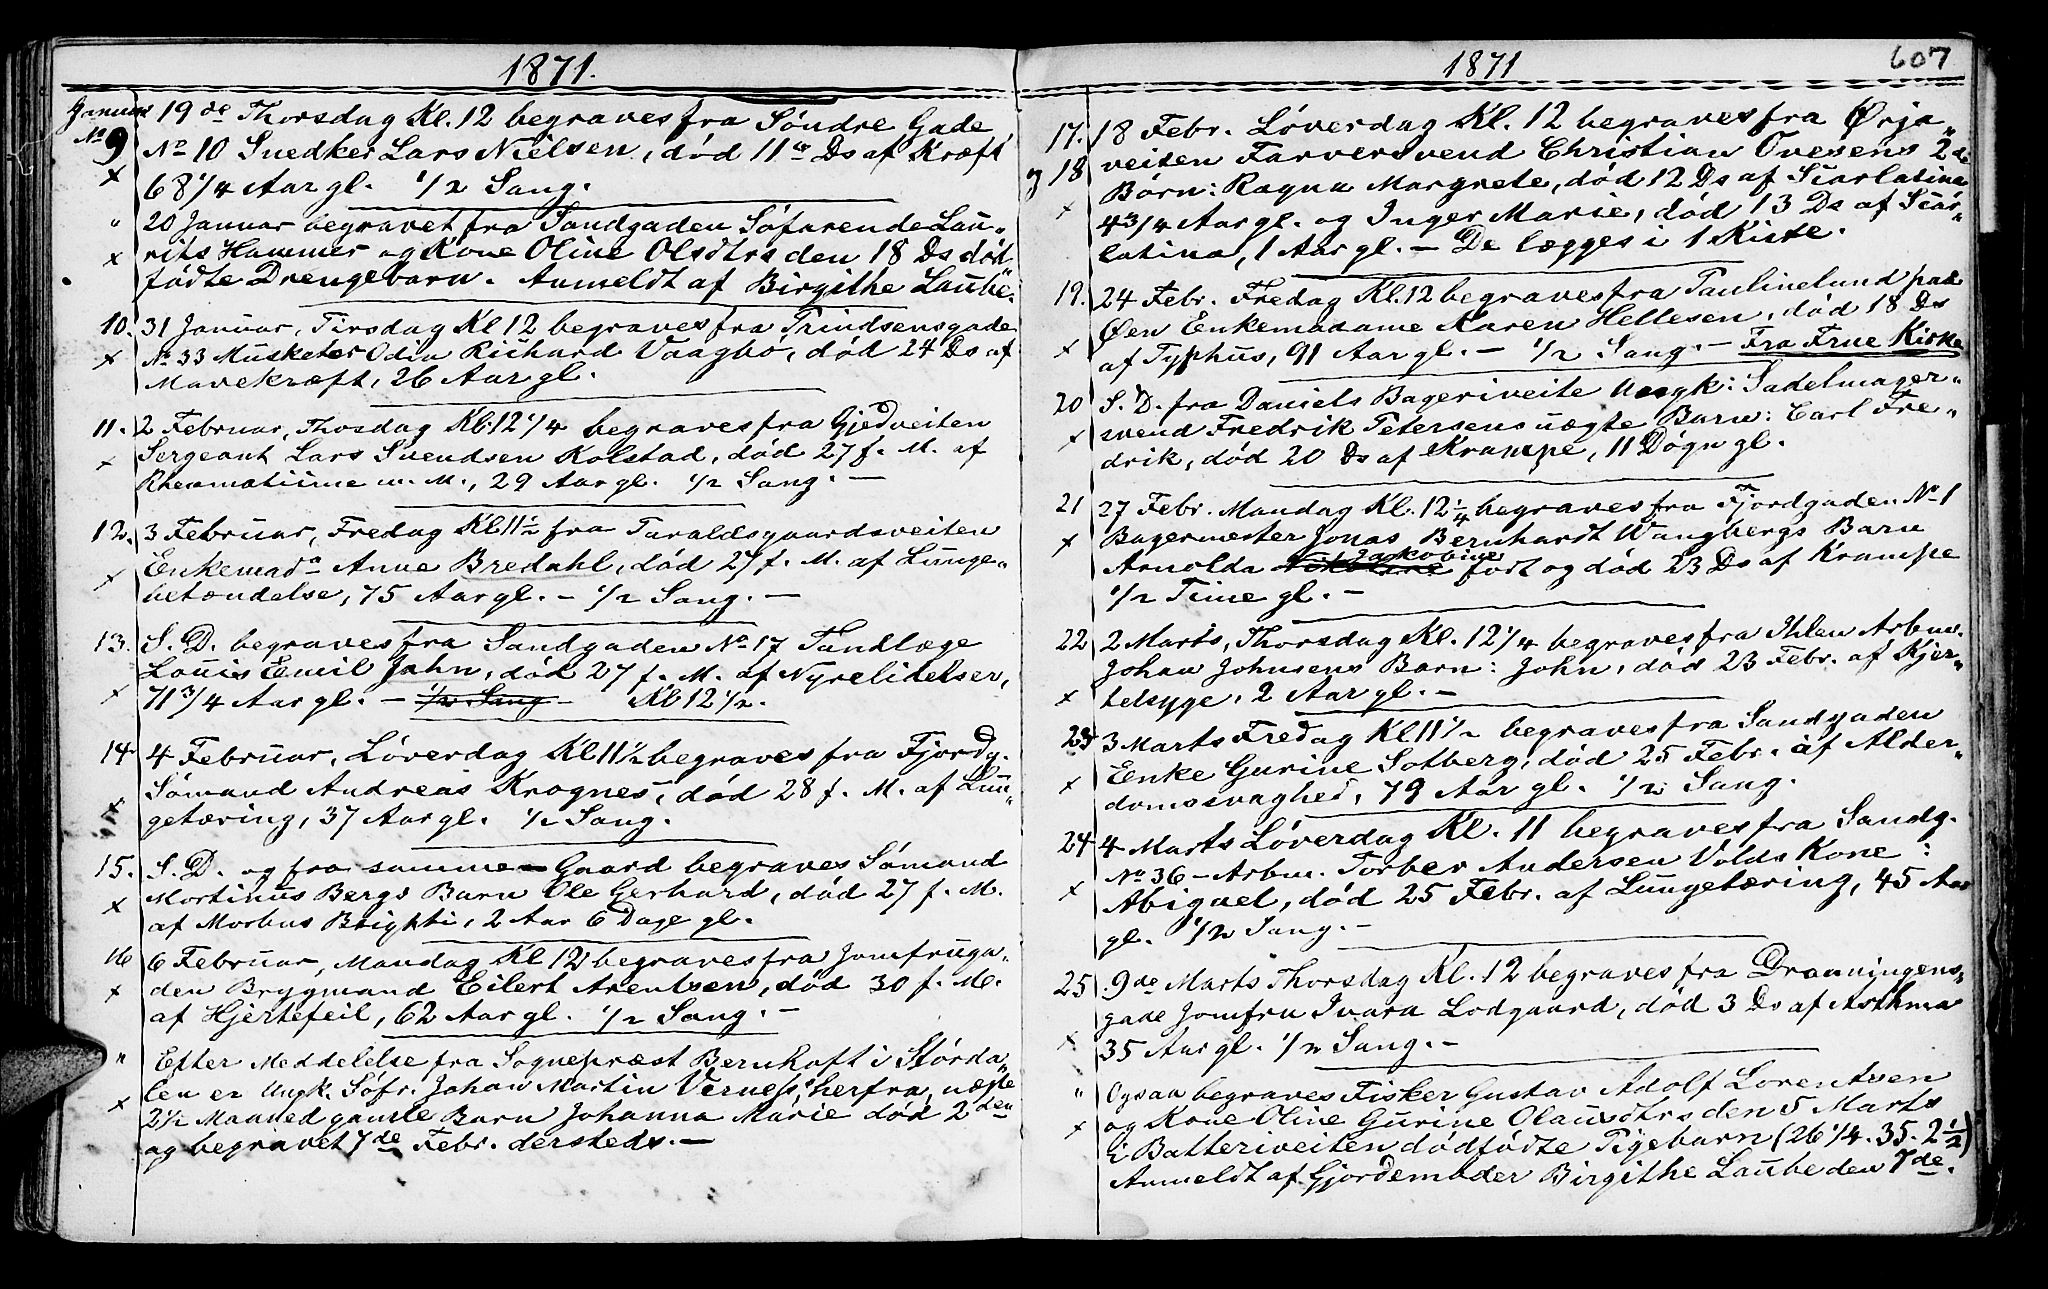 1871.
Januar 19de Thorsdag Kl. 12 begraves fra Söndre Gade
No 9 No 10 Snedker Lars Nielsen, död 11te Ds af Kræft
x 68 1/4 Aar gl. 1/2 Sang.
" 20 Januar begravet fra Sandgaden Söfarende Lau-
x rits Hammer og Kone Oline Olsdtrs den 18 Ds död
födte Drengebarn. Anmeldt af Birgithe Laube.
10. 31 Januar, Tirsdag Kl 12 begraves fra Prindsensgade
x No 33 Musketer Odin Richard Vaagbö, död 24 Ds af
Mavekræft, 26 Aar gl.
11. 2 Februar, Thosdag Kl. 12 1/4 begraves fra Gjedveiten
x Sergeant Lars Svendsen Rolstad, död 27 f. M. af
Rheumatisme m. M., 29 Aar gl. 1/2 Sang. —
12. 3 Februar, Fredag Kl 11 1/2 fra Taraldsgaardsveiten
x Enkemada Anne Bredahl, död 27 f. M. af Lunge-
betændelse, 75 Aar gl. - 1/2 Sang. —
13. S. D. begraves fra Sandgaden No 17 Tandlæge
Louis Emil Jahn, död 27 f. M. af Nyrelidelser,
x 71 3/4 Aar gl. - 1/2 Sang - Kl. 12 1/2.
14. 4 Februar, Löverdag Kl 11 1/2 begraves fra Fjordg.
x Sömand Andreas Krognes, död 28 f. M. af Lun-
getæring, 37 Aar gl. 1/2 Sang.
15. S. D. og fra samme Gaard begraves Sömand
x Mortinus Bergs Barn Ole Gerhard, död 27 f. M.
af Morbus Brighti, 2 Aar 6 Dage gl.
16 6 Februar, Mandag Kl 12 begraves fra Jomfruga-
x den Brygmand Eilert Arentsen, död 30 f. M.
af Hjertefeil, 62 Aar gl. 1/2 Sang. -
" Efter Meddelelse fra Sognepræst Bernhoft i Störda-
len er Ungk. Söfr. Johan Martin Verness, herfra, uægte
x 2 1/2 Maaned gamle Barn Johanna Marie död 2den
og begravet 7de Febr. dersteds. —
1871
607
17. 18 Febr. Löverdag Kl. 12 begraves fra Ørja-
og 18 veiten Farversvend Christian Ovesens 2de
x Börn: Ragna Margrete, död 12 Ds af Scarlatina
4 3/4 Aar gl. og Inger Marie, död 13 Ds af Scar-
latina, 1 Aar gl. - De lægges i 1 Kiste.
19. 24 Febr. Fredag Kl. 12 begraves fra Paulinelund paa
Øen Enkemadame Karen Hellesen, död 18 Ds
x af Typhus, 91 Aar gl. - 1/2 Sang. - Fra Frue Kirke
20 S. D. fra Daniels Bageriveite Ungk: Sadelmager-
x svend Fredrik Petersens uægte Barn: Carl Fre-
drik, död 20 Ds af Krampe, 11 Dögn gl.
21 27 Febr. Mandag Kl. 12 1/4 begraves fra Fjordgaden No 1
x Bagermester Jonas Bernhardt Wangbergs Barn
Arnolda Jackobine födt og död 23 Ds af Krampe
1/2 Time gl. -
22 2 Marts, Thorsdag Kl. 12 1/4 begraves fra Ihlen Arbm.
Johan Johnsens Barn: John, död 23 Febr. af Kjer-
x telsyge, 2 Aar gl. -
23 3 Marts Fredag Kl 11 1/2 begraves fra Sandgaden
x Enke Gurine Solberg, död 25 Febr. af Alder-
domssvaghed, 79 Aar gl. 1/2 Sang.
24 4 Marts Löverdag Kl. 11 begraves fra Sandg.
No 36 - Arbm. Torber Andersen Volds Kone:
x Abigael, död 25 Febr. af Lungetæring, 45 Aar
gl. 1/2 Sang. -
25 9de Marts Thorsdag Kl. 12 begraves fra Dronningens-
gade Jomfru Ivara Lodgaard, död 3 Ds af Asthma
x 35 Aar gl. 1/2 Sang. -
" Ogsaa begraves Fisker Gustav Adolf Lorentsen
x og Kone Oline Gurine Olausdtrs den 5 Marts
i Batteriveiten dödfödte Pigebarn (26 1/4. 35. 2 1/2)
Anmeldt af Gjordemoder Birgithe Laube den 7de.